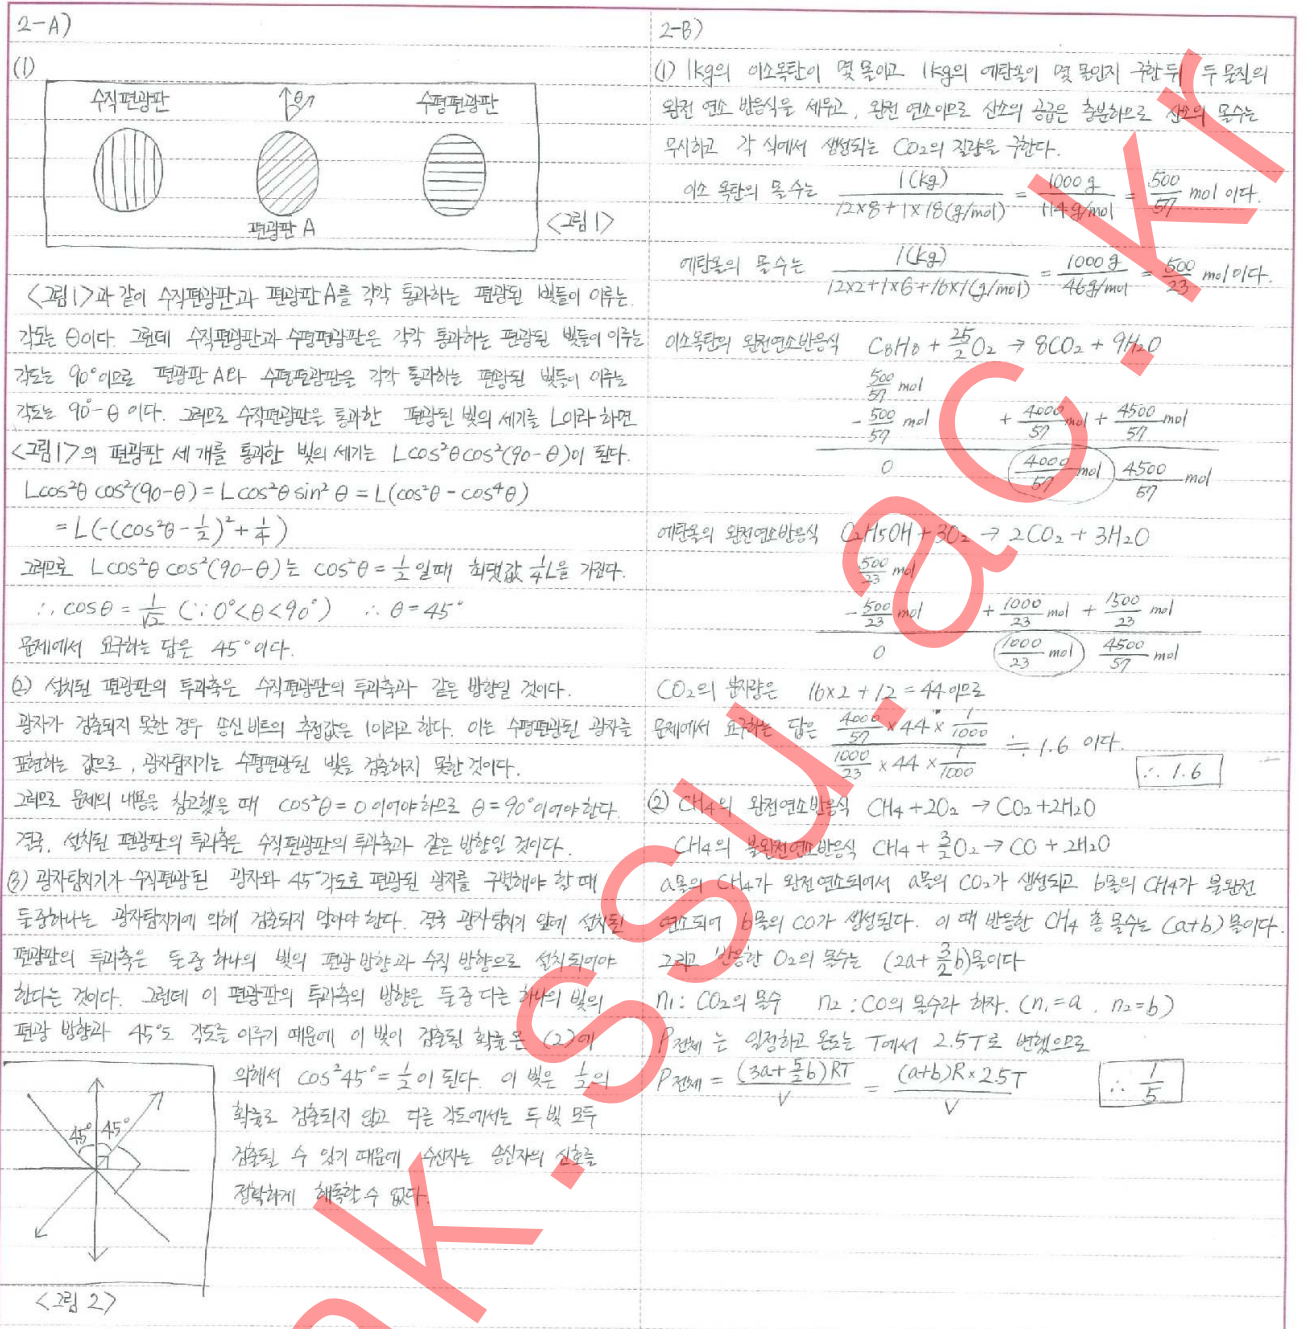 2-A)
(1)
수직편광판 θ 수평편광판
편광판 A
<그림 1>
<그림 1>과 같이 수직편광판과 편광판 A를 각각 통과하는 편광된 빛들이 이루는
각도는 θ이다. 그런데 수직편광판과 수평편광판은 각각 통과하는 편광된 빛들이 이루는
각도는 90°이므로 편광판 A와 수평편광판을 각각 통과하는 편광된 빛들이 이루는
각도는 90°-θ 이다. 그러므로 수직편광판을 통과한 편광된 빛의 세기를 L이라 하면
<그림 1>의 편광판 세 개를 통과한 빛의 세기는 Lcos²θcos²(90-θ)이 된다.
Lcos²θ cos²(90-θ) = Lcos²θ sin²θ = L(cos²θ - cos⁴θ)
= L(-(cos²θ - 1/2)² + 1/4)
그러므로 Lcos²θ cos²(90-θ)는 cos²θ = 1/2 일 때 최댓값 1/4L을 가진다.
∴ cosθ = 1/√2 (∵ 0°<θ<90°) ∴ θ = 45°
문제에서 요구하는 답은 45°이다.
(2) 설치된 편광판의 투과축은 수직편광판의 투과축과 같은 방향일 것이다.
광자가 검출되지 못한 경우 송신 비트의 추정값은 1이라고 한다. 이는 수평편광된 광자를
표현하는 값으로, 광자탐지기는 수평편광된 빛을 검출하지 못한 것이다.
그러므로 문제의 내용을 참고했을 때 cos²θ = 0 이어야 하므로 θ = 90°이어야 한다.
결국, 설치된 편광판의 투과축은 수직편광판의 투과축과 같은 방향일 것이다.
(3) 광자탐지기가 수직편광된 광자와 45°각도로 편광된 광자를 구별해야 할 때
둘중하나는 광자탐지기에 의해 검출되지 말아야 한다. 결국 광자탐지기 앞에 설치된
편광판의 투과축은 둘 중 하나의 빛의 편광 방향과 수직 방향으로 설치되어야
한다는 것이다. 그런데 이 편광판의 투과축의 방향은 둘 중 다른 하나의 빛의
편광 방향과 45°도 각도를 이루기 때문에 이 빛이 검출될 확률은 (2)에
의해서 cos²45° = 1/2이 된다. 이 빛은 1/2의
확률로 검출되지 않고 다른 각도에서는 두 빛 모두
검출될 수 있기 때문에 수신자는 송신자의 신호를
정확하게 해독할 수 없다.
45° 45°
<그림 2>
2-B)
(1) 1kg의 이소옥탄이 몇 몰이고 1kg의 에탄올이 몇 몰인지 구한 뒤 두 물질의
완전 연소 반응식을 세우고, 완전 연소이므로 산소의 공급은 충분하므로 산소의 몰수는
무시하고 각 식에서 생성되는 CO2의 질량을 구한다.
이소 옥탄의 몰 수는 1(kg)/12×8+1×18(g/mol) = 1000g/114g/mol = 500/57 mol 이다.
에탄올의 몰 수는 1(kg)/12×2+1×6+16×1(g/mol) = 1000g/46g/mol = 500/23 mol이다.
이소옥탄의 완전연소반응식 C8H8 + 25/2 O2 → 8CO2 + 9H2O
500/57 mol
- 500/57 mol + 4000/57 mol + 4500/57 mol
0 4000/57 mol 4500/57 mol
에탄올의 완전연소반응식 C2H5OH + 3O2 → 2CO2 + 3H2O
500/23 mol
- 500/23 mol + 1000/23 mol + 1500/23 mol
0 1000/23 mol 4500/57 mol
CO2의 분자량은 16×2 + 12 = 44 이므로
문제에서 요구하는 답은 4000/57 × 44 × 1/1000 / 1000/23 × 44 × 1/1000 ≒ 1.6 이다.
∴ 1.6
(2) CH4의 완전연소반응식 CH4 + 2O2 → CO2 + 2H2O
CH4의 불완전연소반응식 CH4 + 3/2 O2 → CO + 2H2O
a몰의 CH4가 완전연소되어서 a몰의 CO2가 생성되고 b몰의 CH4가 불완전
연소되어 b몰의 CO가 생성된다. 이 때 반응한 CH4 총 몰수는 (a+b)몰이다.
그리고 반응한 O2의 몰수는 (2a + 3/2 b)몰이다
n1 : CO2의 몰수 n2 : CO의 몰수라 하자. (n1 = a, n2 = b)
P전체 는 일정하고 온도는 T에서 2.5T로 변했으므로
P전체 = (3a + 5/2 b)RT/V = (a+b)R × 2.5T/V ∴ 1/5
ak.ssu.ac.kr